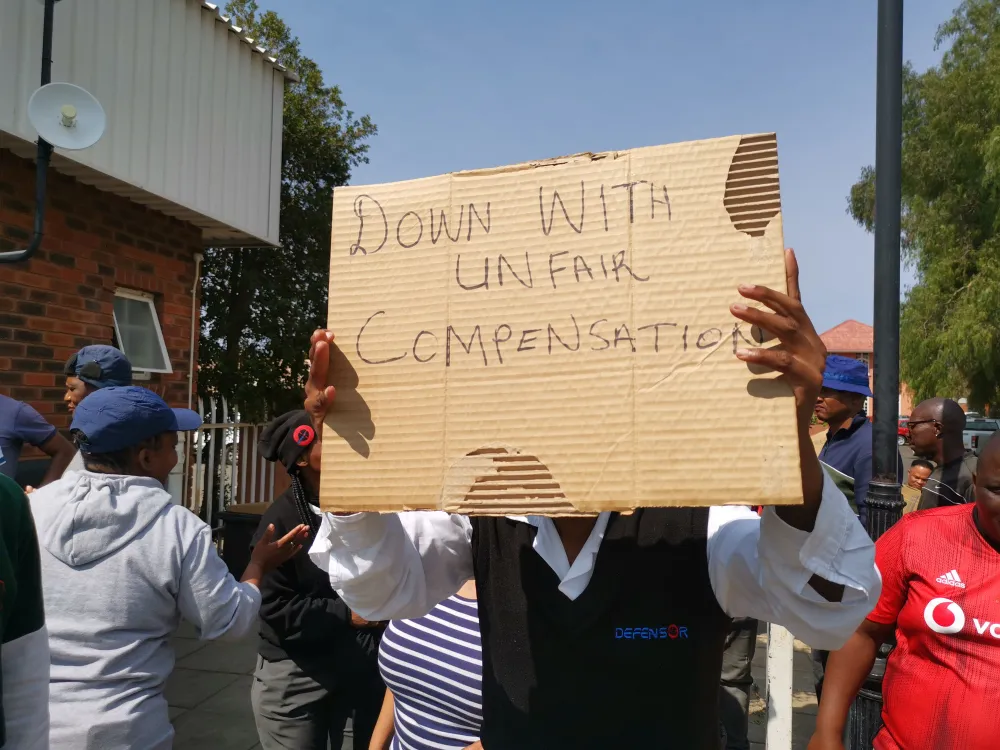 DOWN WITH
UNFAIR
COMPENSATION
DEFENSOR
adidas